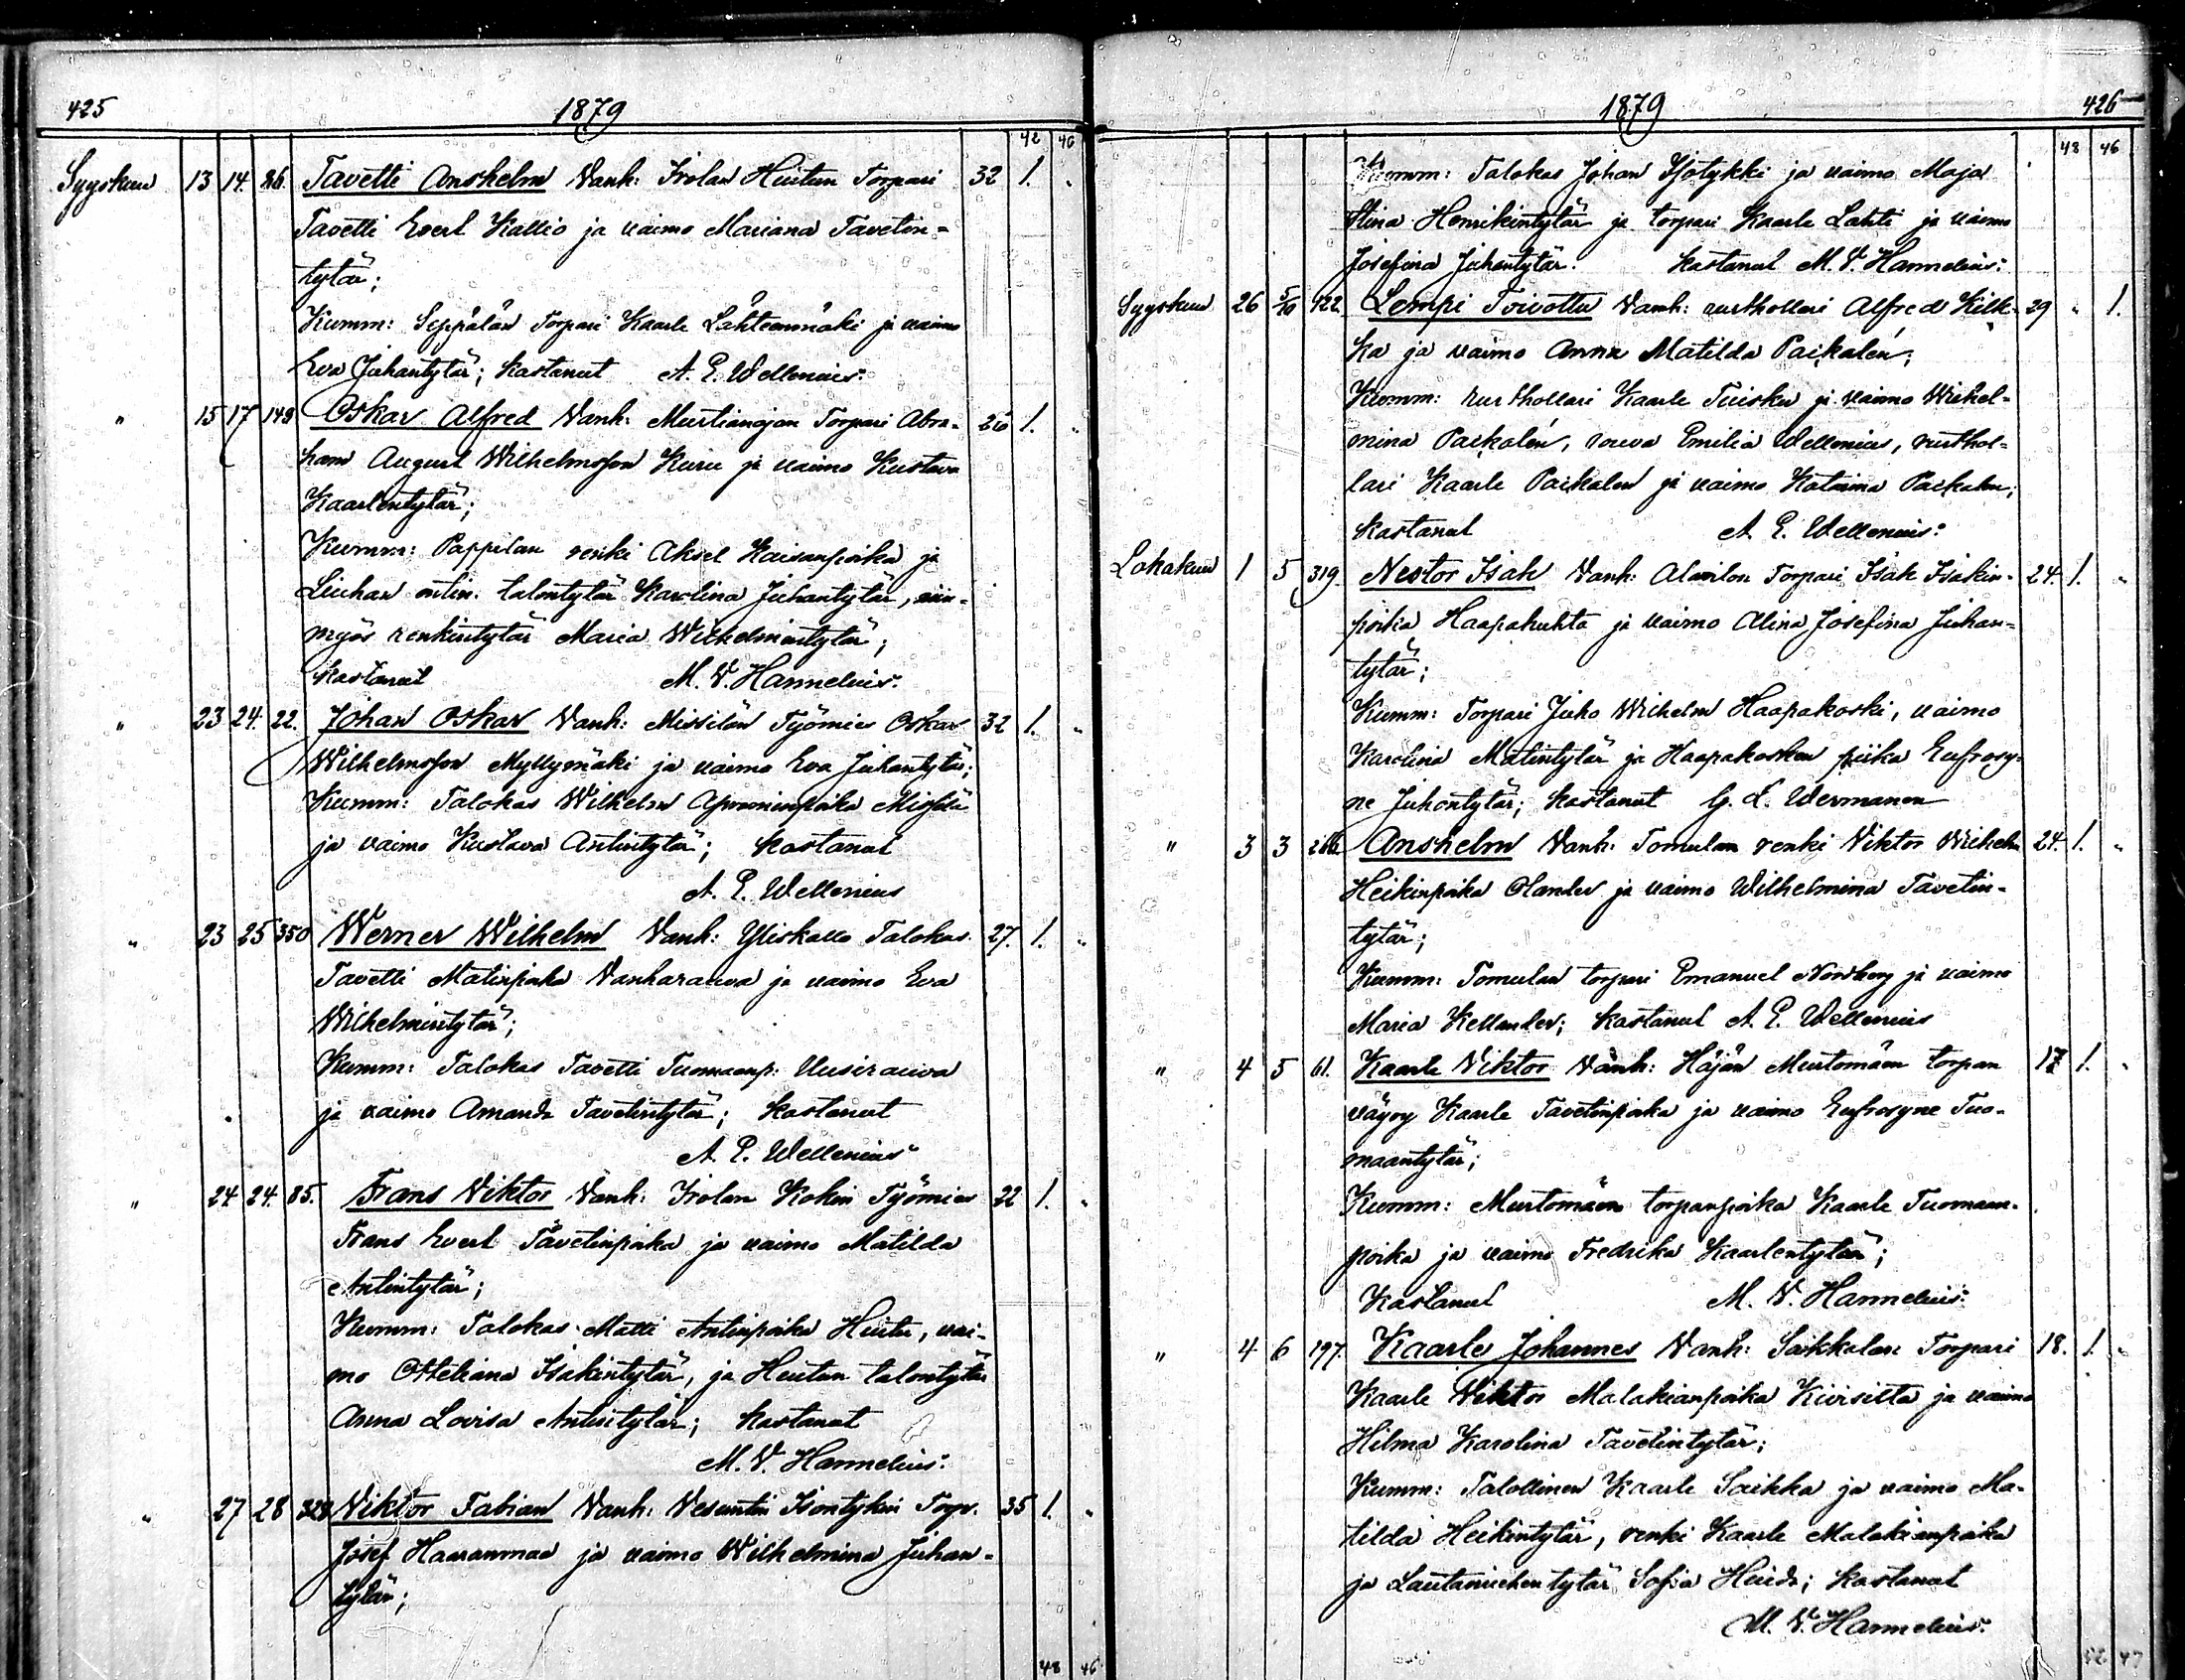 425 1879
42 46
Syyskuu 13 14. 86. Tavetti Anshelm Vanh: Irolan Huitun Torpari 32 1. "
Tavetti Evert Kallio ja vaimo Mariana Tavetin-
tytär;
Kumm: Seppälän Torpari Kaarle Lähteenmäki ja vaimo
Eva Juhantytär; kastanut A. E. Wellenius.
" 15 17 149 Oskar Alfred Vanh: Murtianojan Torpari Abra- 26 1. "
ham August Wilhelmsson Kuru ja vaimo Kustava
Kaarlentytär;
Kumm: Pappilan renki Aksel Kaisanpoika ja
Liuhan entin. talontytär Karolina Juhantytär, niin-
myös renkintytär Maria Wilhelmintytär;
kastanut M. V. Hannelius.
" 23 24. 22. Johan Oskar Vanh: Missilän Työmies Oskar 32 1. "
Wilhelmsson Myllymäki ja vaimo Eva Juhantytär;
Kumm: Talokas Wilhelm
ja vaimo Kustava Antintytär; kastanut
A. E. Wellenius
" 23 25 350 Werner Wilhelm Vanh: Yliskallo Talokas 27. 1. "
Tavetti Matinpoika Vanharauva ja vaimo Eva
Wilhelmintytär;
Kumm: Talokas Tavetti Tuomaanp. Uusirauva
ja vaimo Amanda Tavetintytär; kastanut
A. E. Wellenius
" 24 24. 85. Frans Viktor Vanh: Irolan Kokin Työmies 22 1. "
Frans Evert Tavetinpoika ja vaimo Matilda
Antintytär;
Kumm: Talokas Matti Antinpoika Huitu, vai-
mo Otteliana Isakintytär, ja Huitun talontytär
Anna Lovisa Antintytär; kastanut
M. V. Hannelius.
" 27 28 328 Viktor Fabian Vanh: Vesuntin Isontykin Torp. 35 1. "
Josef Haaranmaa ja vaimo Wilhelmina Juhan-
tytär;
48 46
1879 426
48 46
Kumm: Talokas Johan Isotykki ja vaimo Maja
Stina Henrikintytär ja torpari Kaarle Lahti ja vaimo
Josefina Juhantytär. kastanut M. V. Hannelius.
Syyskuu 26 5/10 122. Lempi Toivottu Vanh: rusthollari Alfred Kilk- 29 " 1.
ka ja vaimo Anna Matilda Paikalén;
Kumm: rusthollari Kaarle Tuisku ja vaimo Wilhel-
mina Paikalén, rouva Emilia Wellenius, rusthol-
lari Kaarle Paikalen ja vaimo Katarina Paikalen;
kastanut A. E. Wellenius.
Lokakuu 1 5 319. Nestor Isak Vanh: Alasilon Torpari Isak Isakin- 24. 1. "
poika Haapahuhta ja vaimo Alina Josefina Juhan-
tytär;
Kumm: Torpari Juho Wilhelm Haapakoski, vaimo
Karolina Matintytär ja Haapakosken piika Eufrosy-
ne Juhontytär; kastanut G. L. Wermanen
" 3 3 266. Anshelm Vanh: Tomulan renki Viktor Wilhelm 24. 1. "
Heikinpoika Olander ja vaimo Wilhelmina Tavetin-
tytär;
Kumm: Tomulan torpari Emanuel Nordberg ja vaimo
Maria Kellander; kastanut A. E. Wellenius
" 4 5 61. Kaarle Viktor Vanh: Häjän Murtomäen torpan 17 1. "
vävy Kaarle Tavetinpoika ja vaimo Eufrosyne Tuo-
maantytär;
Kumm: Murtomäen torpanpoika Kaarle Tuomaan-
poika ja vaimo Fredrika Kaarlentytär;
kastanut M. V. Hannelius.
" 4. 6 197. Kaarle Johannes Vanh: Saikkalan Torpari 18. 1. "
Kaarle Viktor Malakianpoika Kivisilta ja vaimo
Hilma Karolina Tavetintytär;
Kumm: Talollinen Kaarle Saikka ja vaimo Ma-
tilda Heikintytär, renki Kaarle Malakianpoika
ja Lautamiehentytär Sofia Heida; kastanut
M. V. Hannelius.
52 47